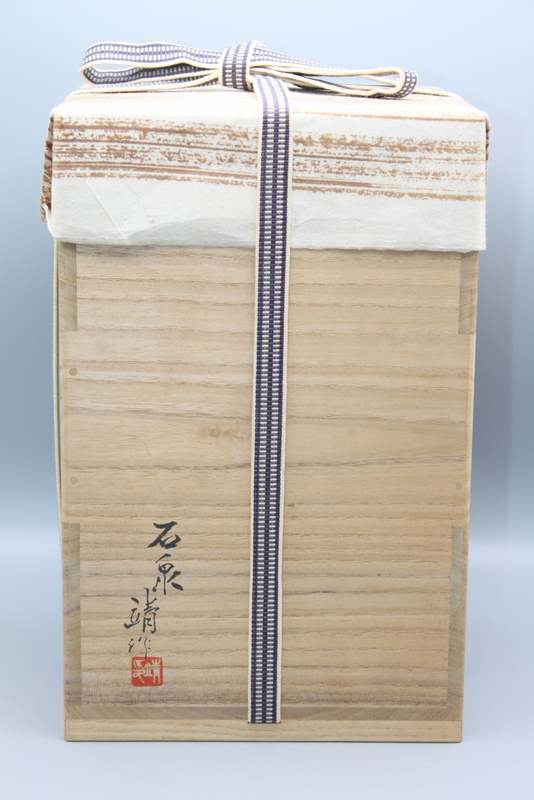 石泉
靖作